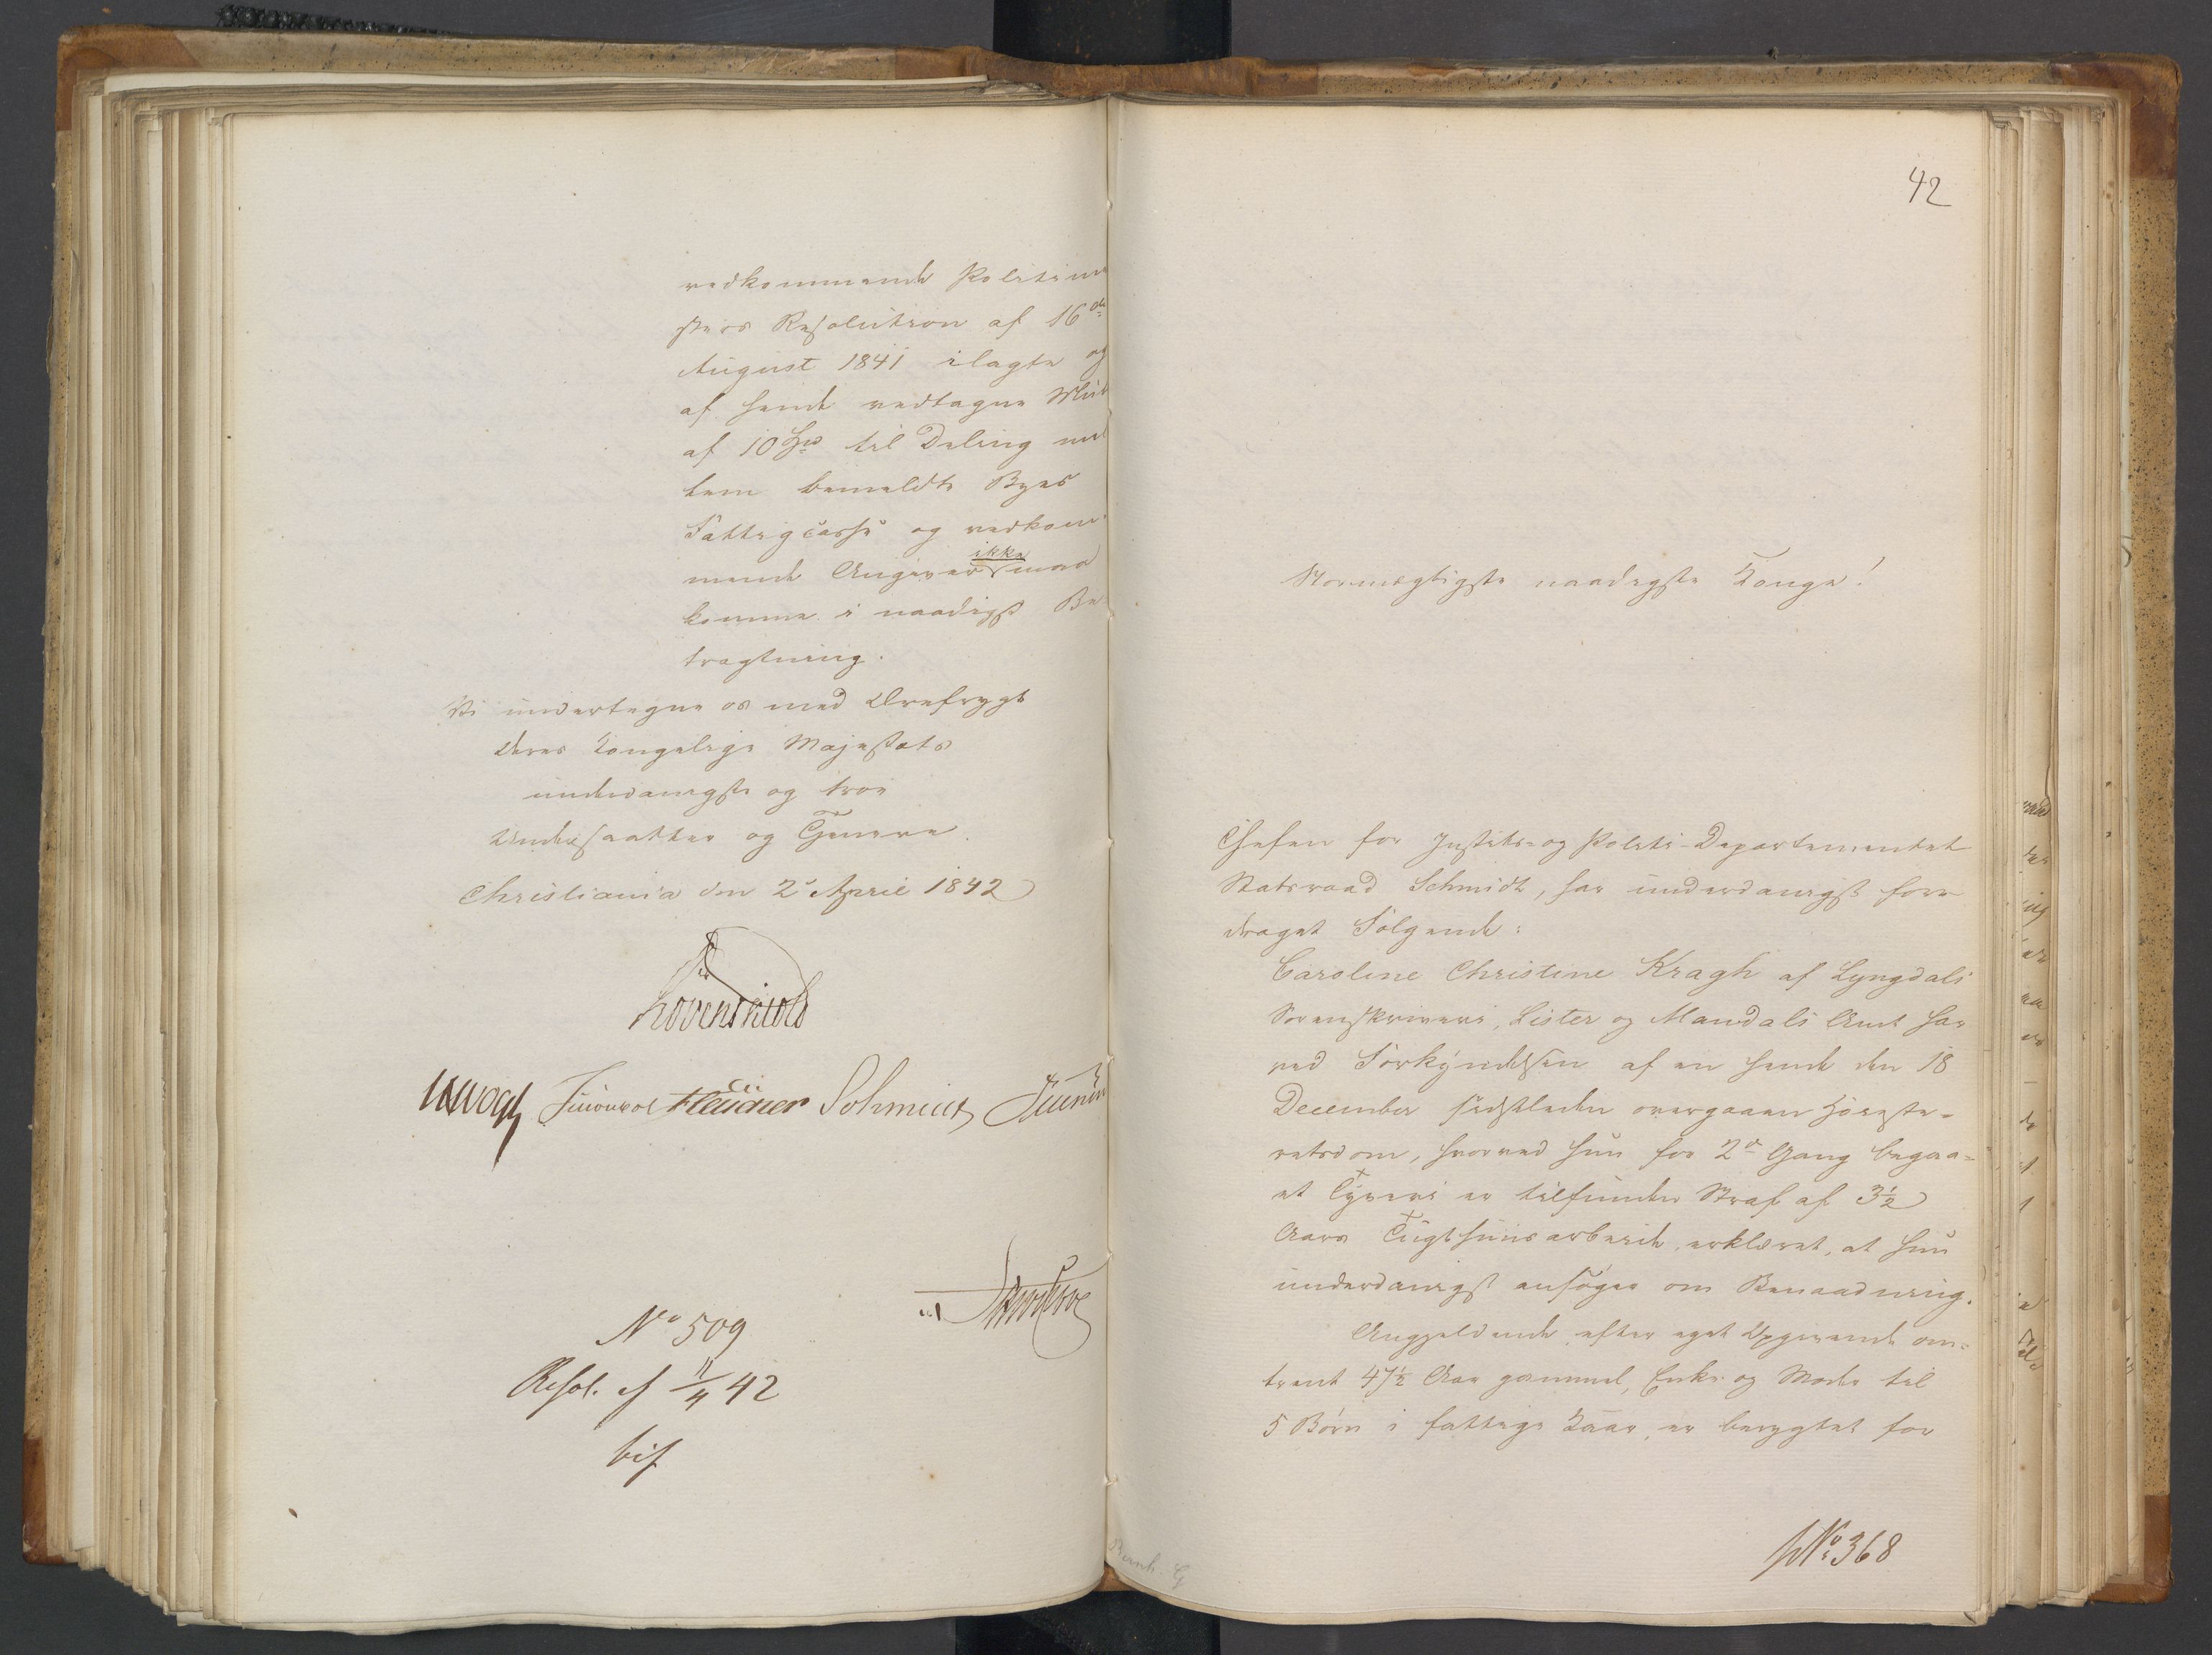 vedkommende Politime
sters Resolution af 16de
August 1841 ilagte og
af hende vedtagne Mulct
af 10 Spd til Deling mel
lem bemeldte Byes
Fattigcasse og vedkom
mende Angiver ikke maa
komme i naadigst Be
tragtning.
Vi undertegne os med Ærefrygt
Deres Kongelige Majestæts
underdanigste og troe
Undersaatter og Tjenere.
Christiania den 2d April 1842
Løvenskiold
Vogt Fleischer Schmidt
No 509
Resol. af 11/4 42
bif
42
Stormægtigste naadigste Konge!
Chefen for Justits- og Politi-Departementet
Statsraad Schmidt, har underdanigst fore
draget Følgende:
Caroline Christine Kragh af Lyngdals
Sorenskriveri, Lister og Mandals Amt har
ved Forkyndelsen af en hende den 18
December sidstleden overgaaen Høieste-
retsdom, hvorved hun for 2d Gang begaa-
et Tyveri er tilfunden Straf af 3½
Aars Tugthuusarbeide, erklæret, at hun
underdanigst ansøger om Benaadning.
Angjeldende, efter eget Opgivende om-
trent 47½ Aar gammel, Enke og Moder til
5 Børn i fattige Kaar, er berygtet for
No 368